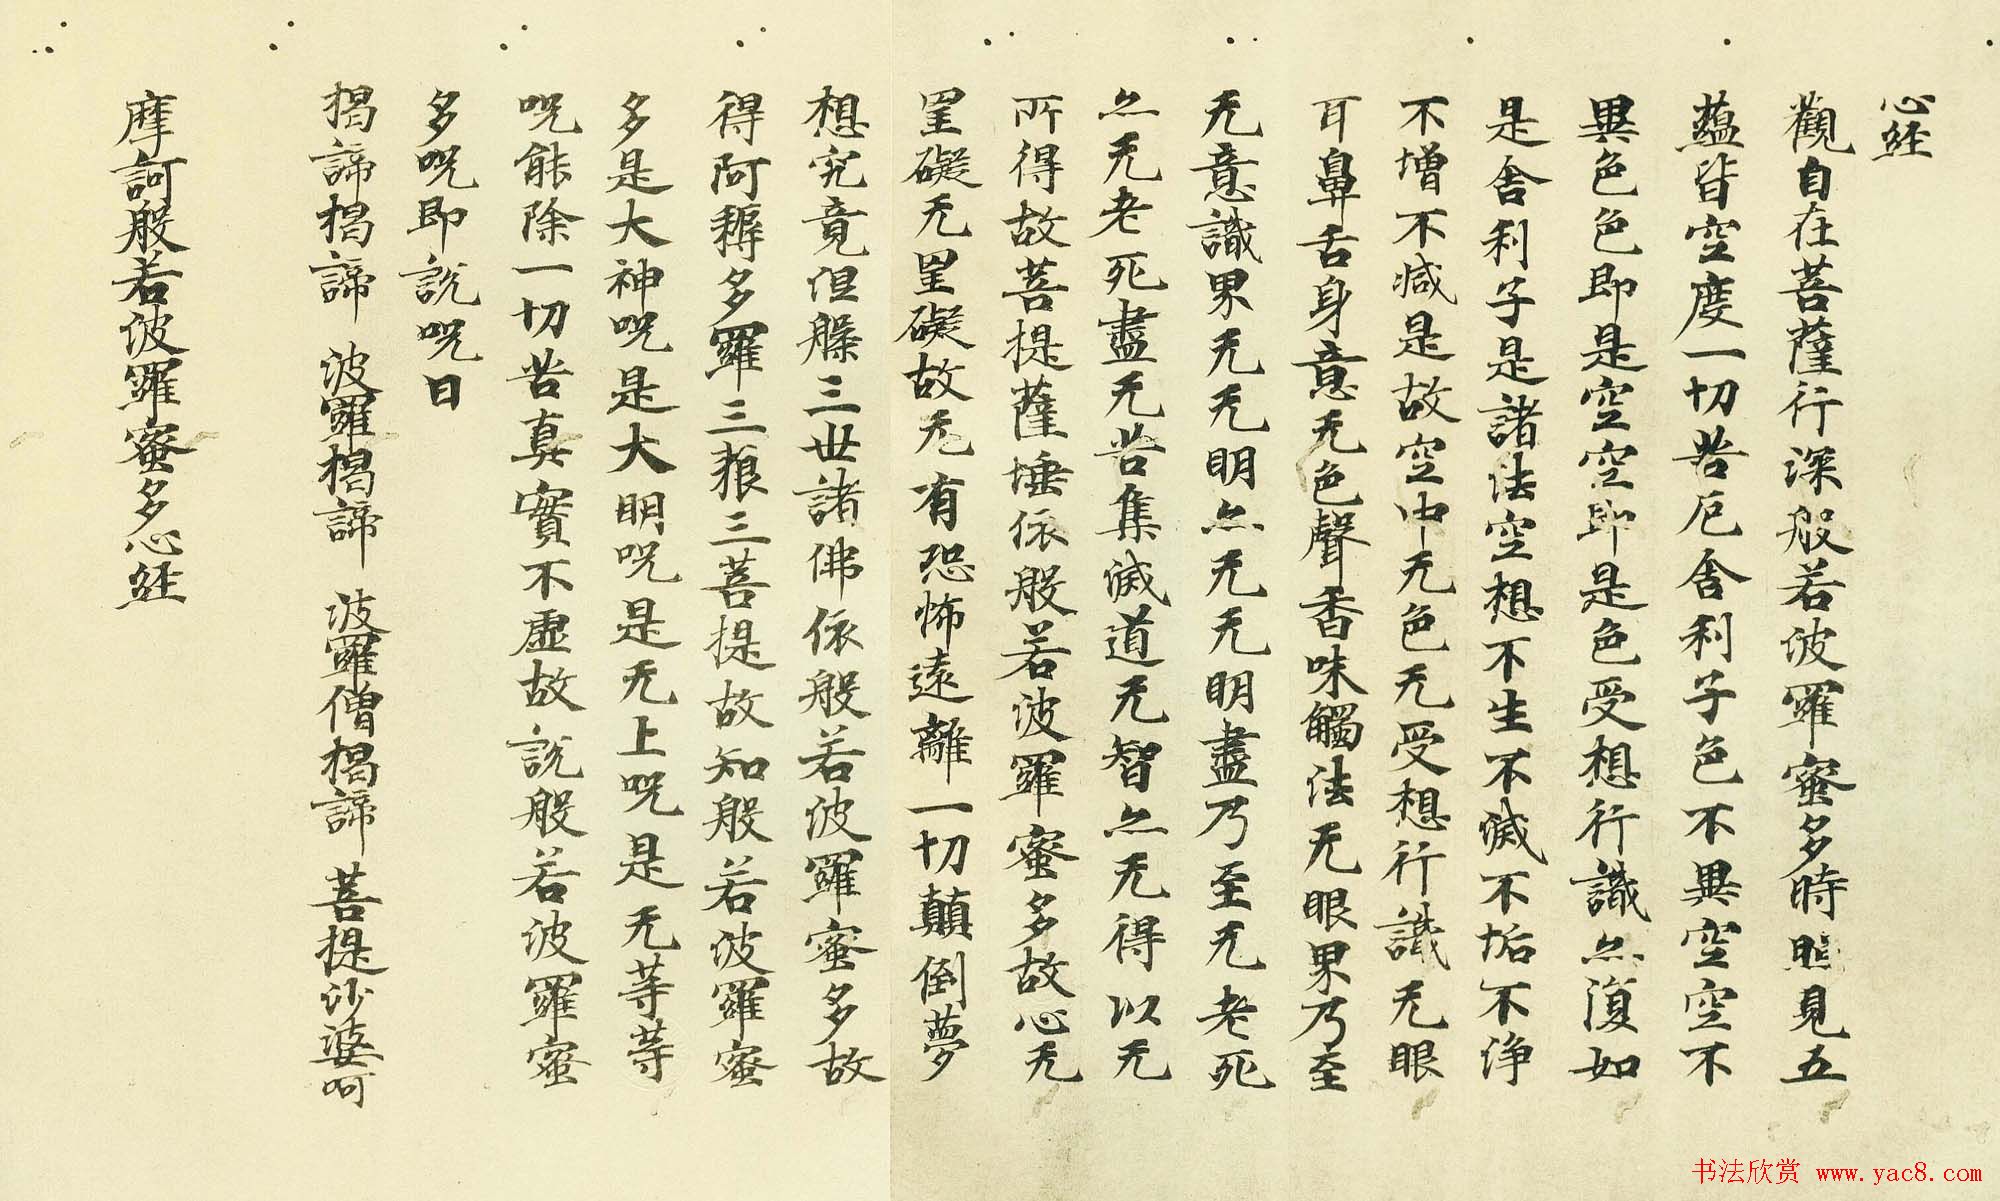 心経
觀自在菩薩行深般若波羅蜜多時照見五
蘊皆空度一切苦厄舍利子色不異空空不
異色色即是空空即是色受想行識亦復如
是舍利子是諸法空想不生不滅不垢不淨
不增不減是故空中无色无受想行識无眼
耳鼻舌身意无色聲香味觸法无眼界乃至
无意識界无无明亦无无明盡乃至无老死
亦无老死盡无苦集滅道无智亦无得以无
所得故菩提薩埵依般若波羅蜜多故心无
罣礙无罣礙故无有恐怖遠離一切顛倒夢
想究竟涅槃三世諸佛依般若波羅蜜多故
得阿耨多羅三藐三菩提故知般若波羅蜜
多是大神呪是大明呪是无上呪是无等等
呪能除一切苦真實不虛故說般若波羅蜜
多呪即說呪曰
揭諦揭諦 波羅揭諦 波羅僧揭諦 菩提沙婆呵
摩訶般若波羅蜜多心経
书法欣赏 www.yac8.com